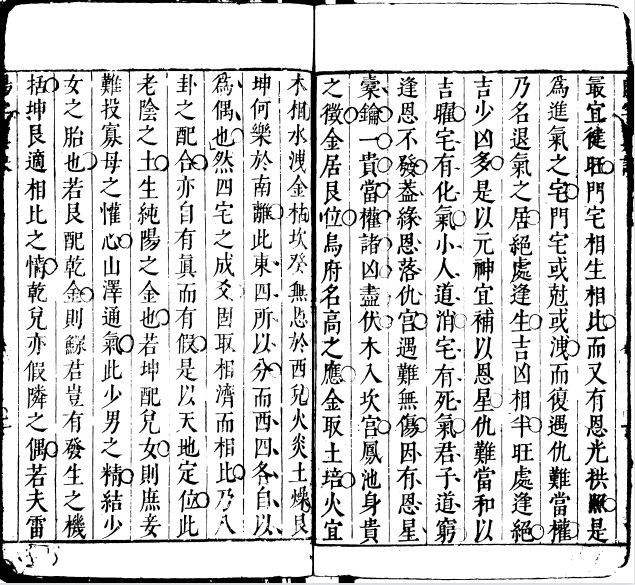 最宜健旺門宅相生相比而又有恩光拱照是
爲進氣之宅門宅或尅或洩而復遇仇難當權
乃名退氣之居絕處逢生吉凶相半旺處逢絕
吉少凶多是以元神宜補以恩星仇難當和以
吉曜宅有化氣小人道消宅有死氣君子道窮
逢恩不發葢緣恩落仇宮遇難無傷因有恩星
橐鑰一貴當權諸凶盡伏木入坎宮鳳池身貴
之徵金居艮位烏府名高之應金取土培火宜
木相水洩金枯坎癸無恩於西兒火炎土燥艮
坤何樂於南離此東四所以分而西四各自以
爲偶也然四宅之成爻固取相濟而相比乃八
卦之配合亦自有眞而有假是以天地定位此
老陰之土生純陽之金也若坤配兒女則庶妾
難投寡母之懽心山澤通氣此少男之精結少
女之胎也若艮配乾金則蘇君豈有發生之機
括坤艮適相比之情乾兒亦假隣之偶若夫雷